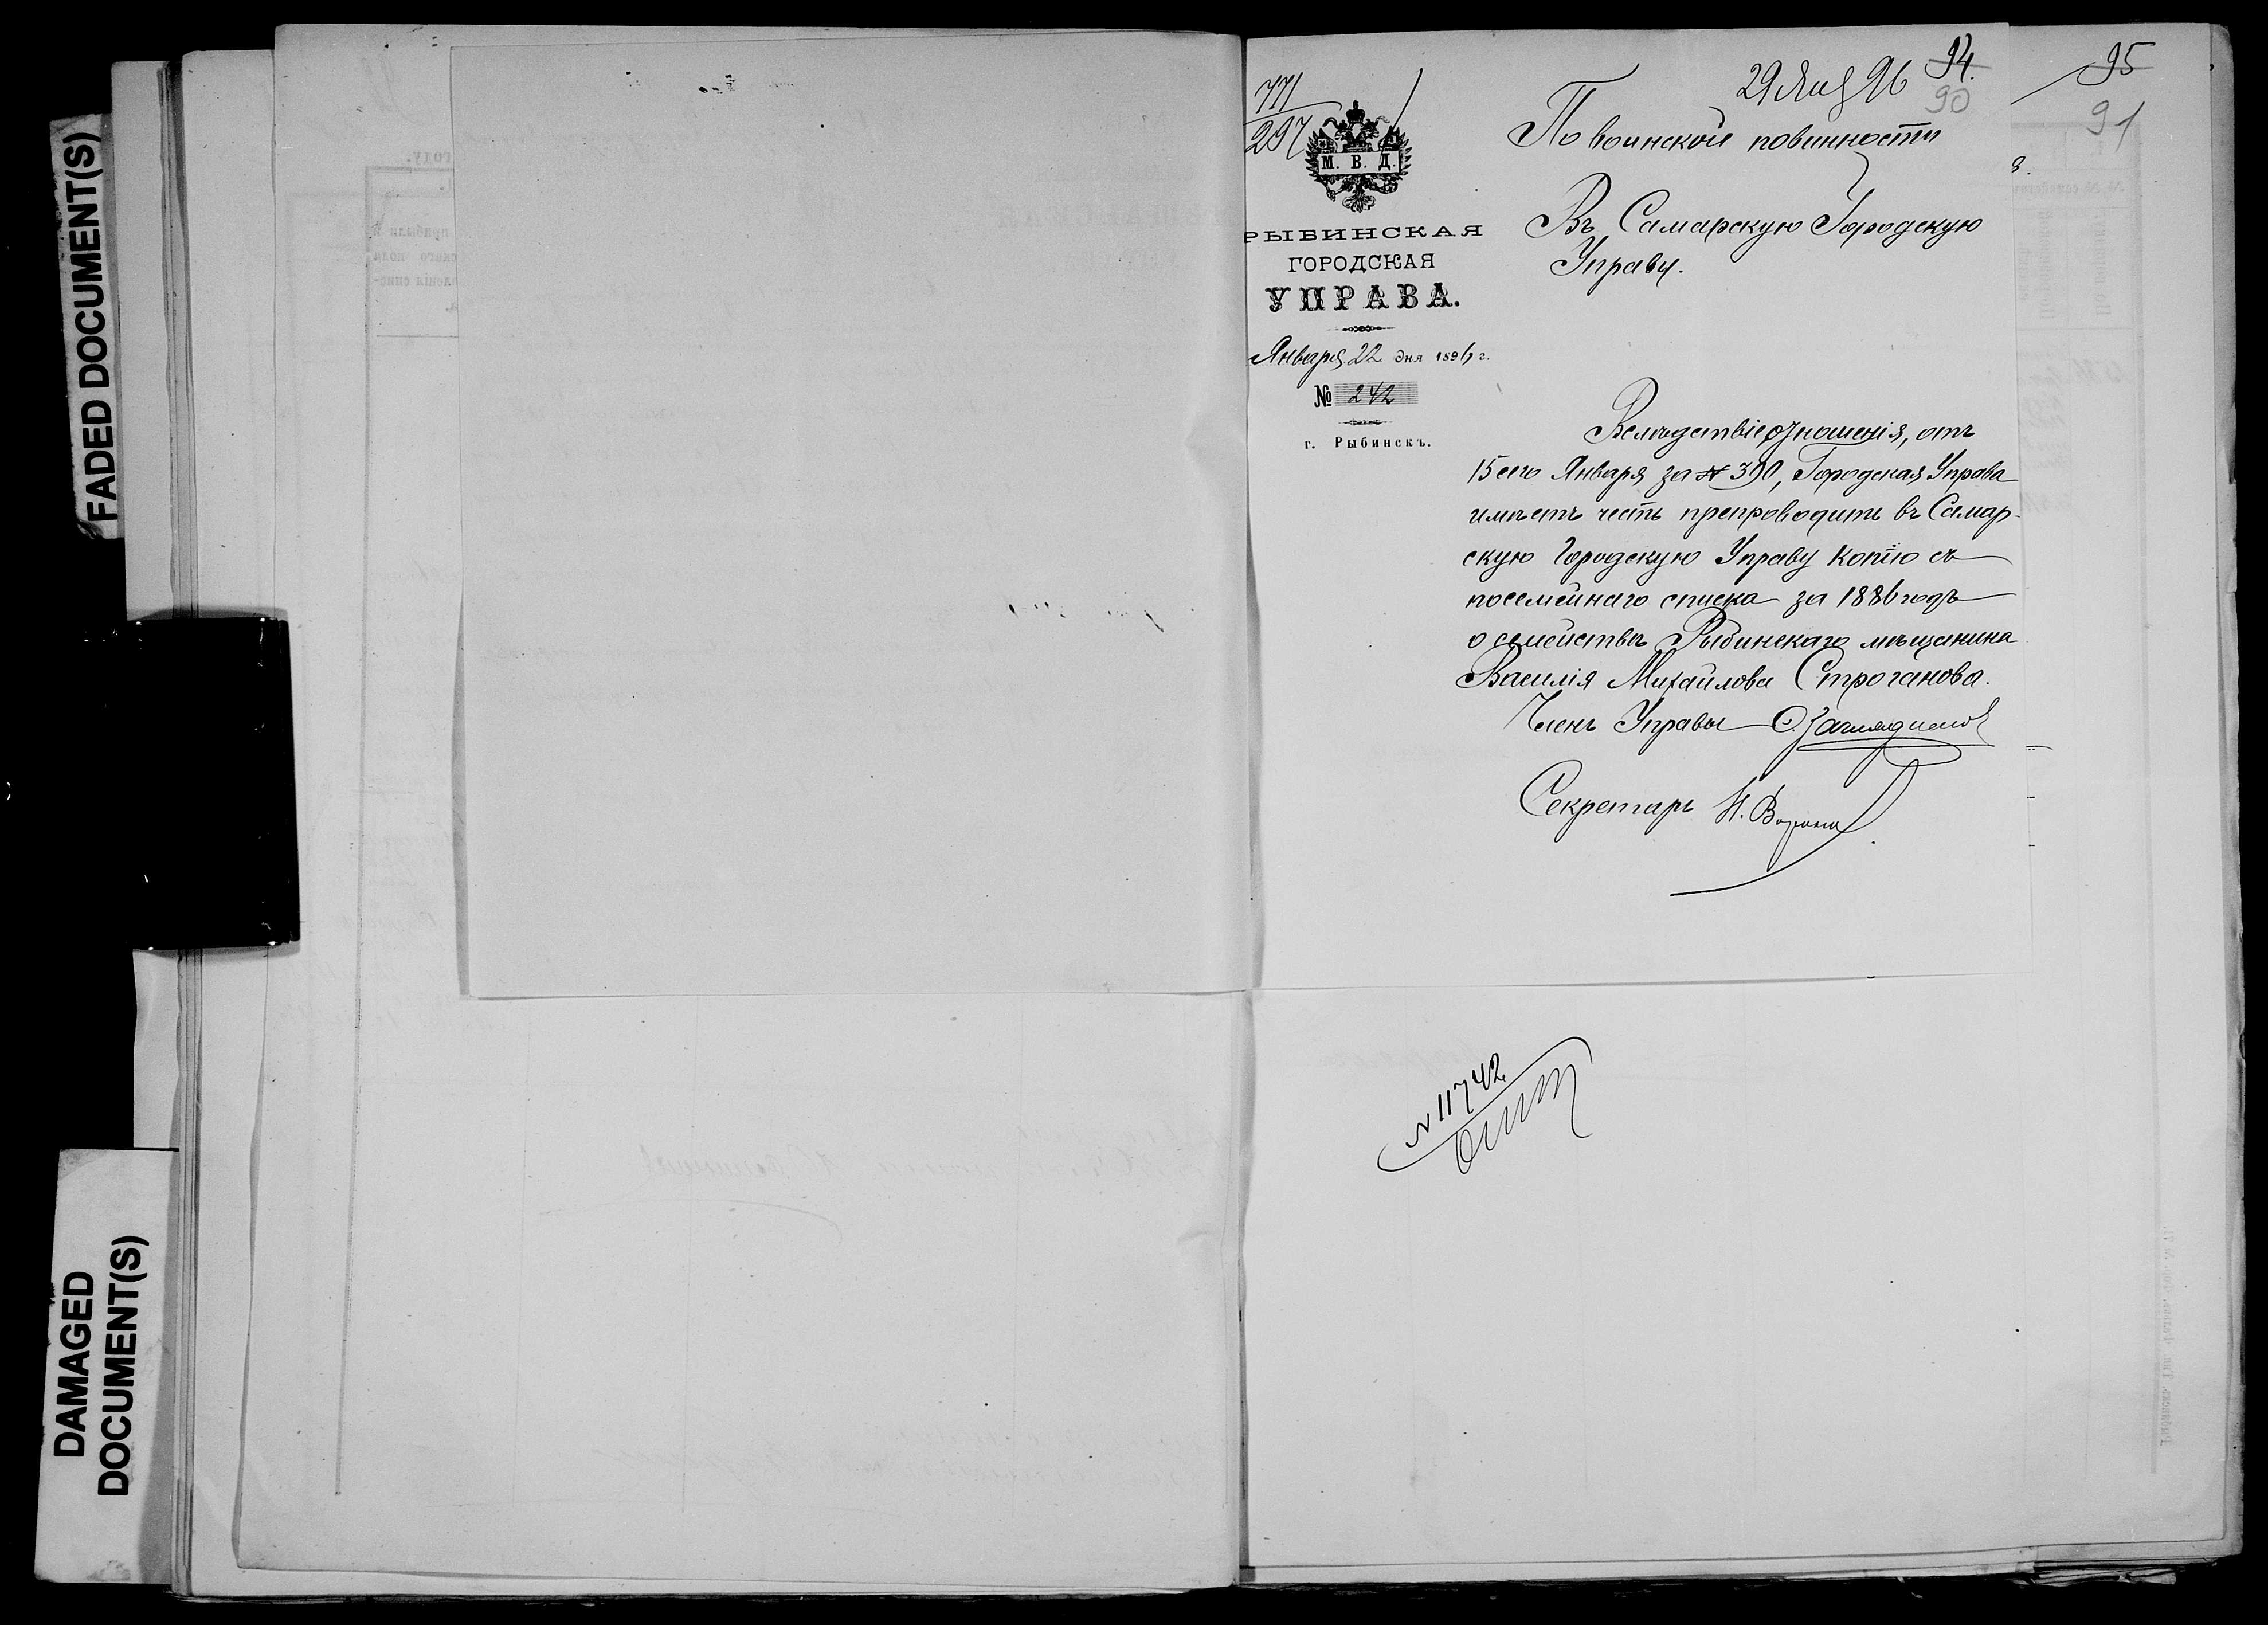 FADED DOCUMENT(S)
DAMAGED
DOCUMENT(S)
771
297
29 Янв 96
94.
90
95
91
М. В. Д.
РЫБИНСКАЯ
ГОРОДСКАЯ
УПРАВА.
Января 22 дня 1896 г.
№ 242
г. Рыбинскъ.
По воинской повинности
Въ Самарскую Городскую
Управу.
Вслѣдствіе отношенія, отъ
15 сего Января за № 390, Городская Управа
имѣетъ честь препроводить въ Самар-
скую Городскую Управу копію съ
посемейнаго списка за 1886 годъ
о семействѣ Рыбинскаго мѣщанина
Василія Михайлова Строганова.
Членъ Управы
Секретарь Н.
№ 11742